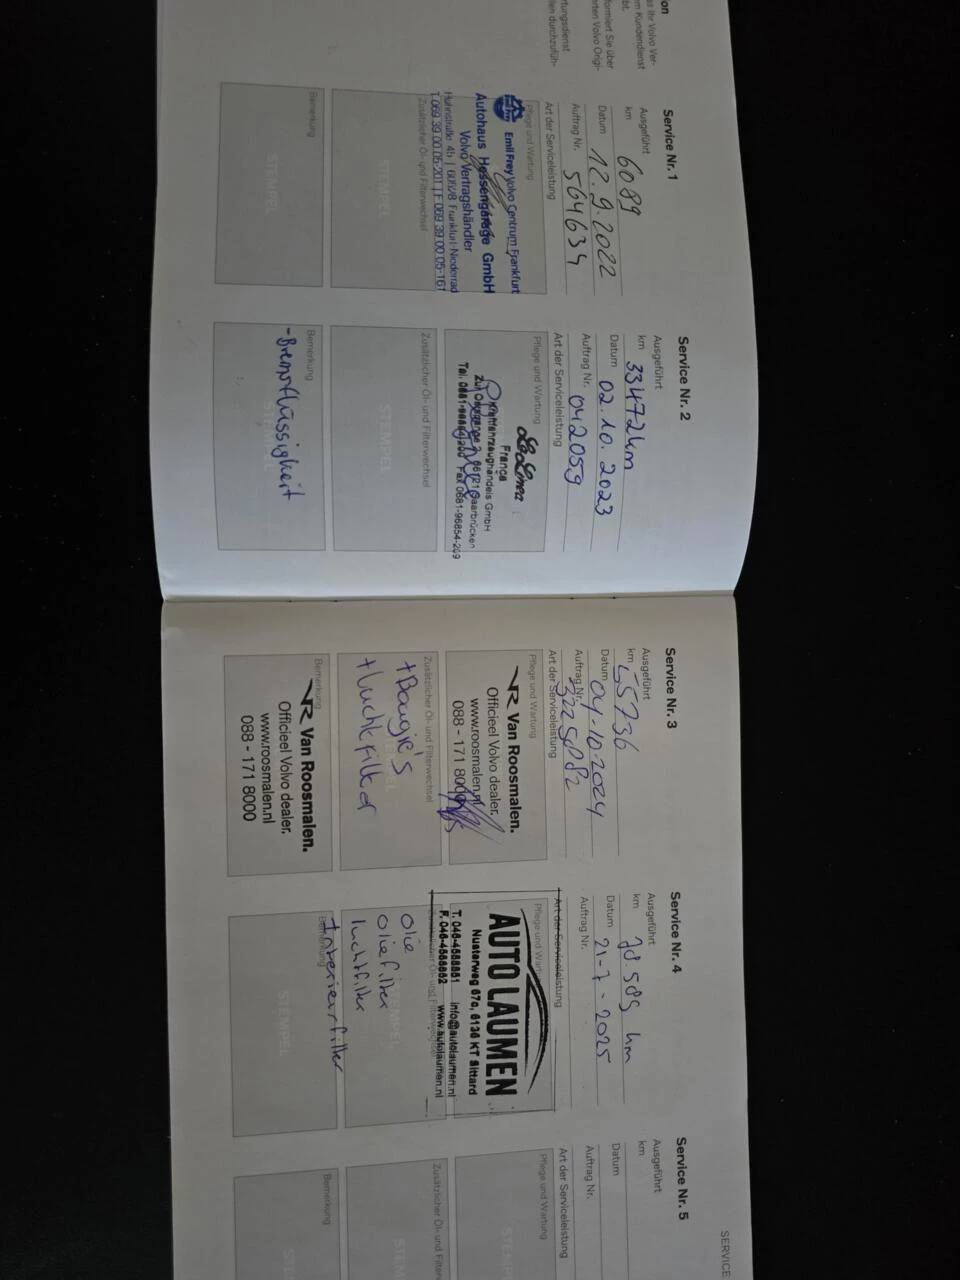 on
as Ihr Volvo Ver-
m Kundendienst
bt.
formiert Sie über
rten Volvo Origi-
rtungsdienst
len durchzufüh-
Service Nr. 1
Ausgeführt
km 6089
Datum 12.9.2022
Auftrag Nr. 564634
Art der Serviceleistung
Pflege und Wartung
Emil Frey Volvo Centrum Frankfurt
Autohaus Hessengarage GmbH
Volvo Vertragshändler
Hahnstraße 45 | 60528 Frankfurt-Niederrad
T 069 39 00 05-201 | F 069 39 00 05-161
Zusätzlicher Öl- und Filterwechsel
STEMPEL
Bemerkung
STEMPEL
Service Nr. 2
Ausgeführt
km 33472km
Datum 02.10.2023
Auftrag Nr. 042059
Art der Serviceleistung
Pflege und Wartung
La Linea
France
Kraftfahrzeughandels GmbH
66121 Saarbrücken
Fax 0681-96854-209
Zusätzlicher Öl- und Filterwechsel
STEMPEL
Bemerkung
-Bremsflüssigkeit
STEMPEL
SERVICE
Service Nr. 3
Ausgeführt
km 55736
Datum 04-10-2024
Auftrag Nr. 3225082
Art der Serviceleistung
Pflege und Wartung
Van Roosmalen.
Officieel Volvo dealer.
www.roosmalen.nl
088 - 171 8000
Zusätzlicher Öl- und Filterwechsel
+ Bougie's
+ Luchtfilter
Bemerkung
Van Roosmalen.
Officieel Volvo dealer.
www.roosmalen.nl
088 - 171 8000
Service Nr. 4
Ausgeführt
km 78.585 km
Datum 21-7-2025
Auftrag Nr.
Art der Serviceleistung
Pflege und Wartung
AUTO LAUMEN
Nusterweg 67c, 6136 KT Sittard
T. 046-4588851 info@autolaumen.nl
F. 046-4588852 www.autolaumen.nl
Zusätzlicher Öl- und Filterwechsel
olie
oliefilter
luchtfilter
STEMPEL
Bemerkung
interieurfilter
STEMPEL
Service Nr. 5
Ausgeführt
km
Datum
Auftrag Nr.
Art der Serviceleistung
Pflege und Wartung
STEM
Zusätzlicher Öl- und Filterw
STEM
Bemerkung
STEM